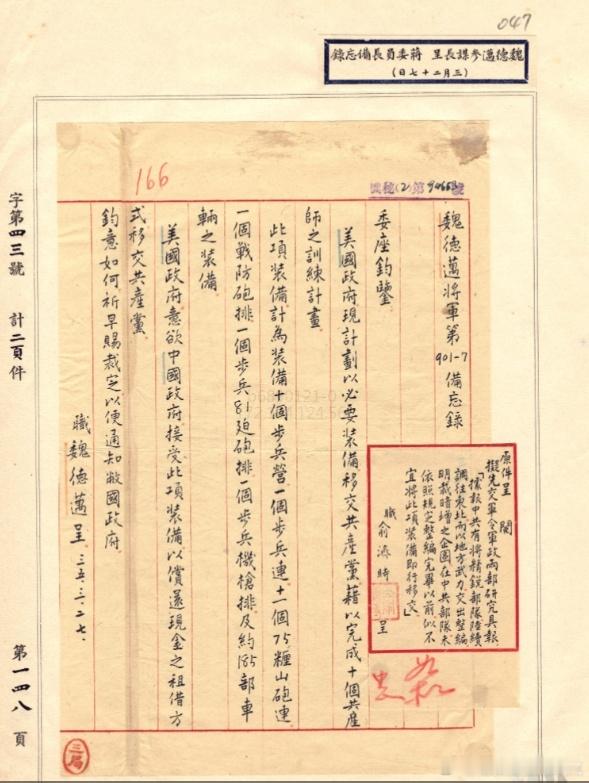 047
魏德邁參謀長呈 蔣委員長備忘錄
(三月二十七日)
166
魏德邁將軍第901-7備忘錄
委座鈞鑒
美國政府現計劃以必要裝備移交共產黨藉以完成十個共產
師之訓練計畫
此項裝備計為裝備十個步兵營一個步兵連十一個75糎山砲連
一個戰防砲排一個步兵81迫砲排一個步兵機槍排及約185部車
輛之裝備
美國政府意欲中國政府接受此項裝備以償還現金之租借方
式移交共產黨
鈞意如何祈早賜裁定以便通知敝國政府
職魏德邁呈 三五、三、二七、
原件呈閱
擬先交軍令軍政兩部研究具報
「據報中共有將精銳部隊陸續
調往東北而以地方武力交出整編
明裁暗增之企圖在中共部隊未
依照規定整編完畢以前似不
宜將此項裝備即行移交」
職俞濟時呈
如擬
字第四三號 計二頁件
第一四八頁
三局